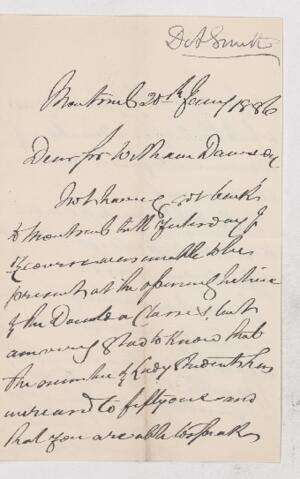 D A Smith
Montreal 20th Jany 1886
Dear Sir William Dawson,
Not having got back
to Montreal till Yesterday I
of course was unable to be
present at the opening lecture
of the Donalda Classes, but
am very glad to know that
the number of Lady Students has
increased to fifty one and
that you are able to speak